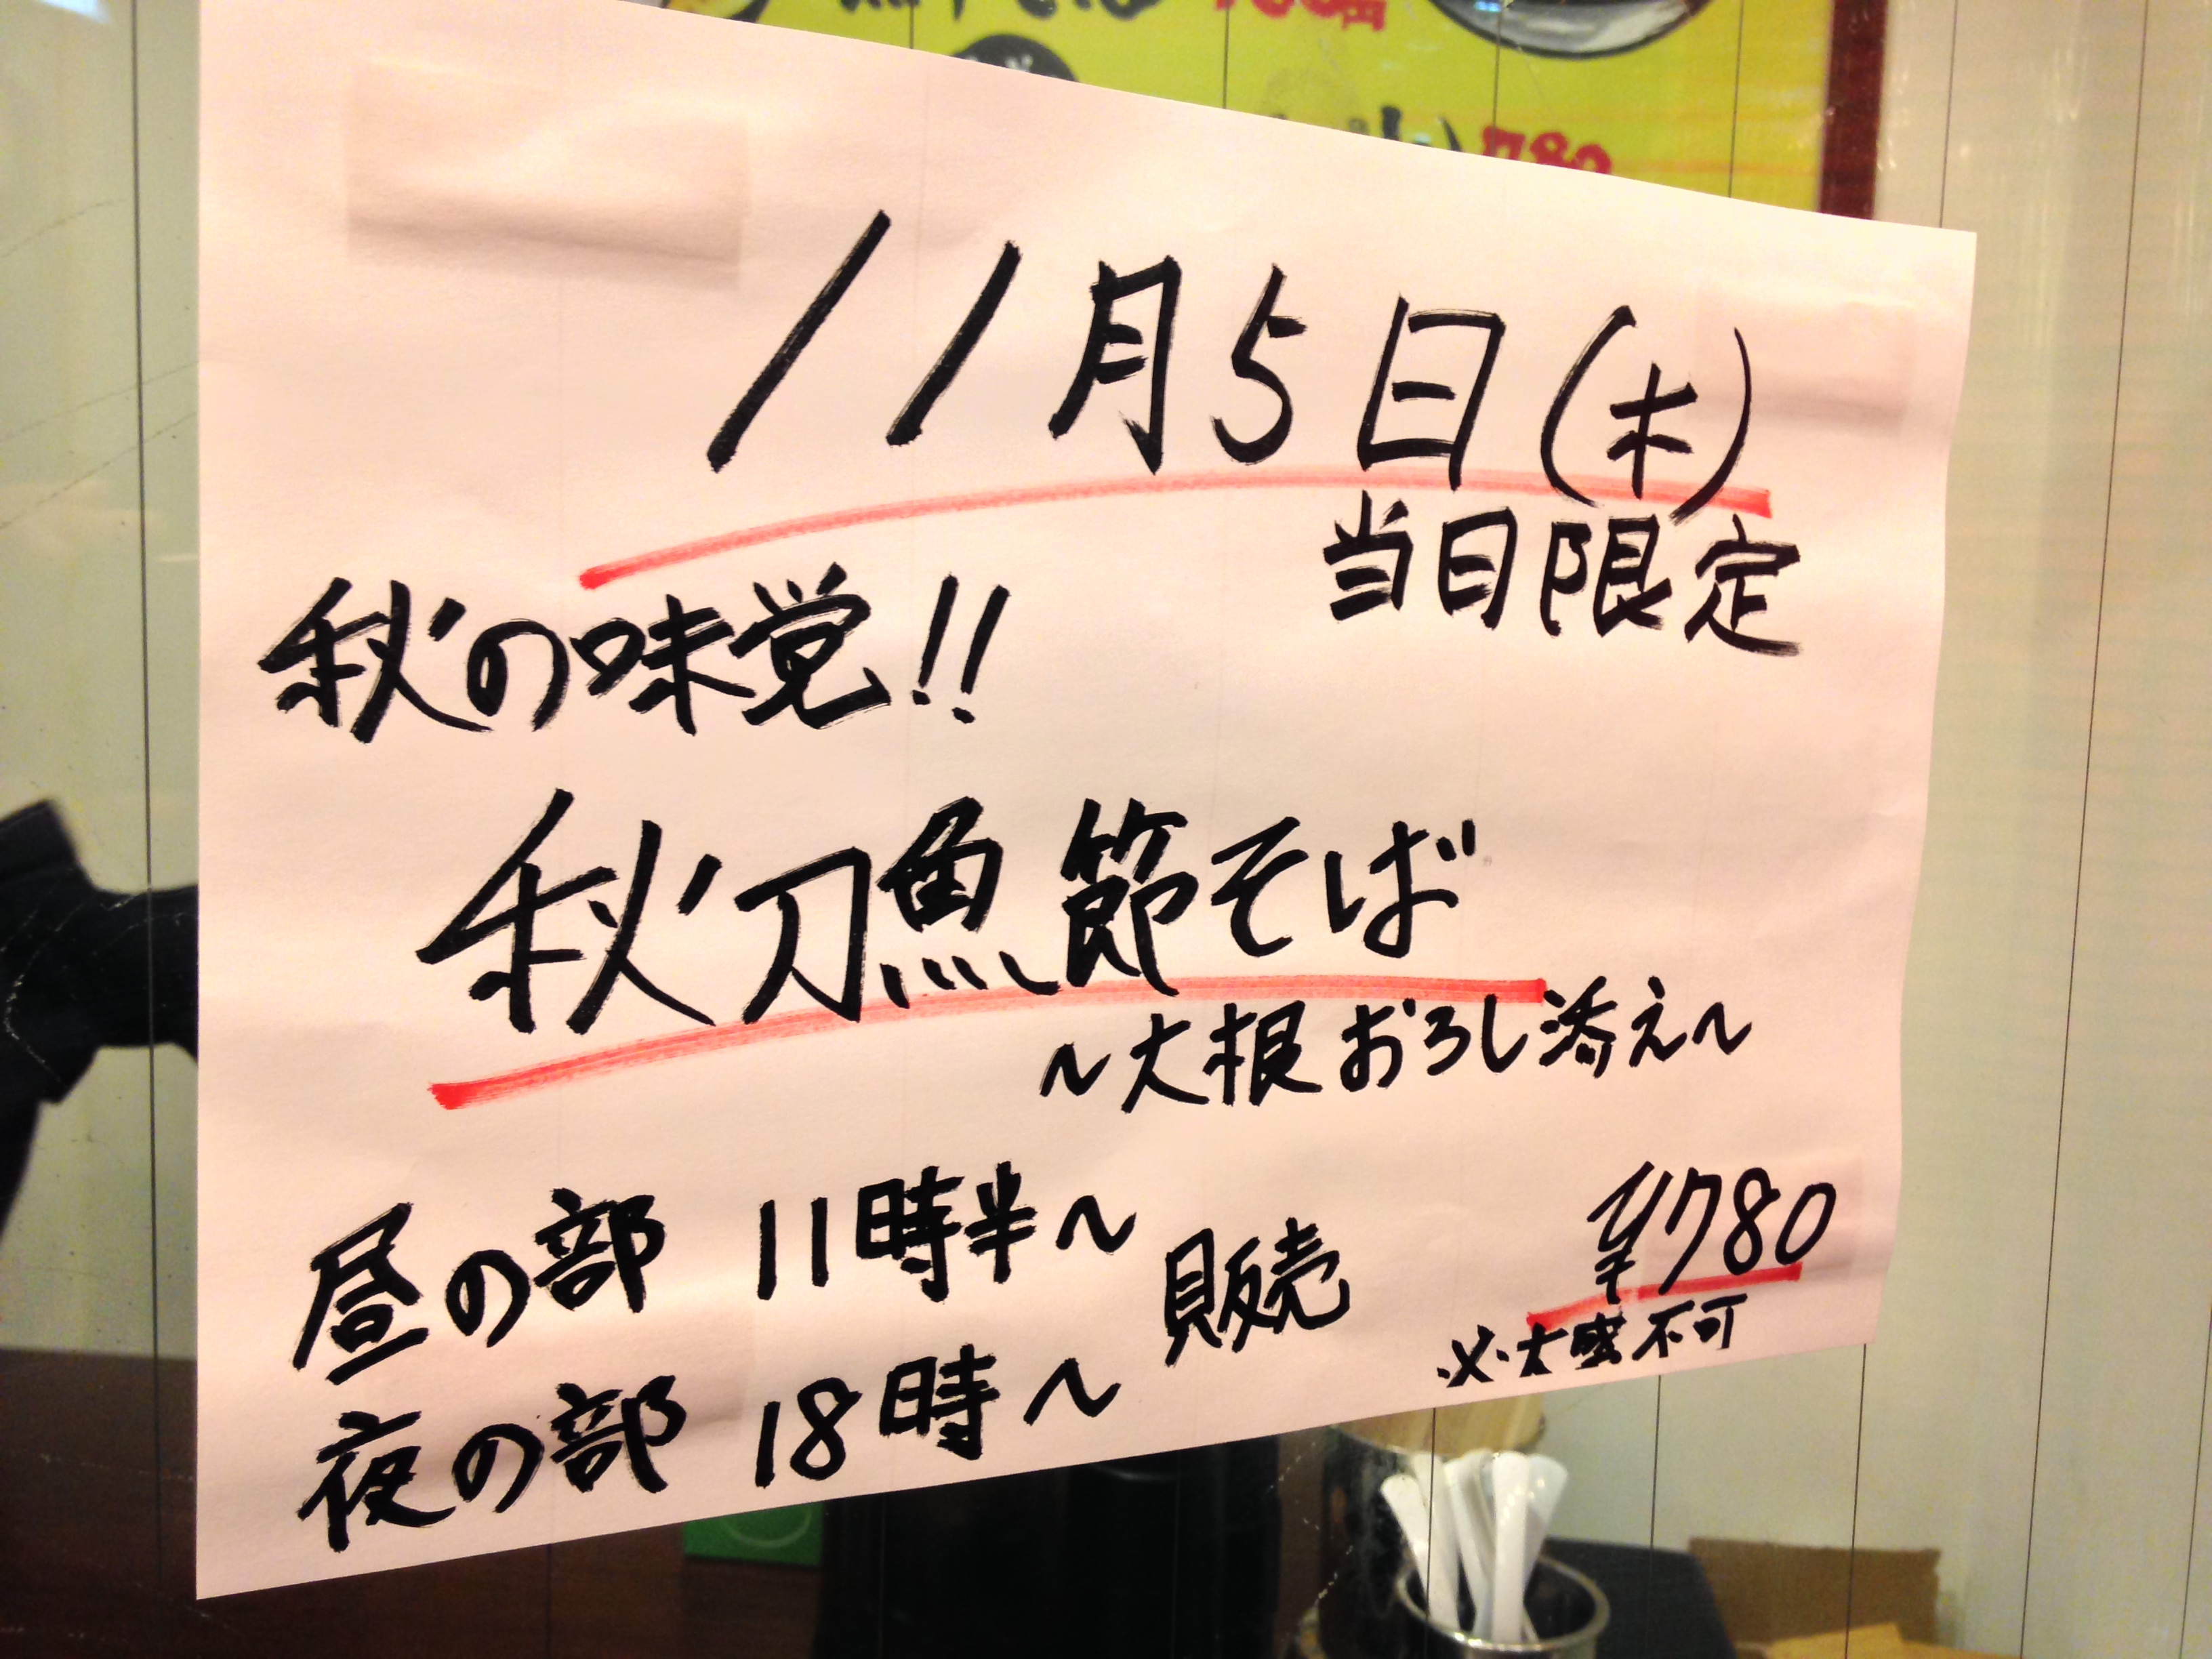 780
11月5日(木)
当日限定
秋の味覚!!
秋刀魚節そば
~大根おろし添え~
昼の部 11時半~
販売
夜の部 18時~
¥780
※大盛不可